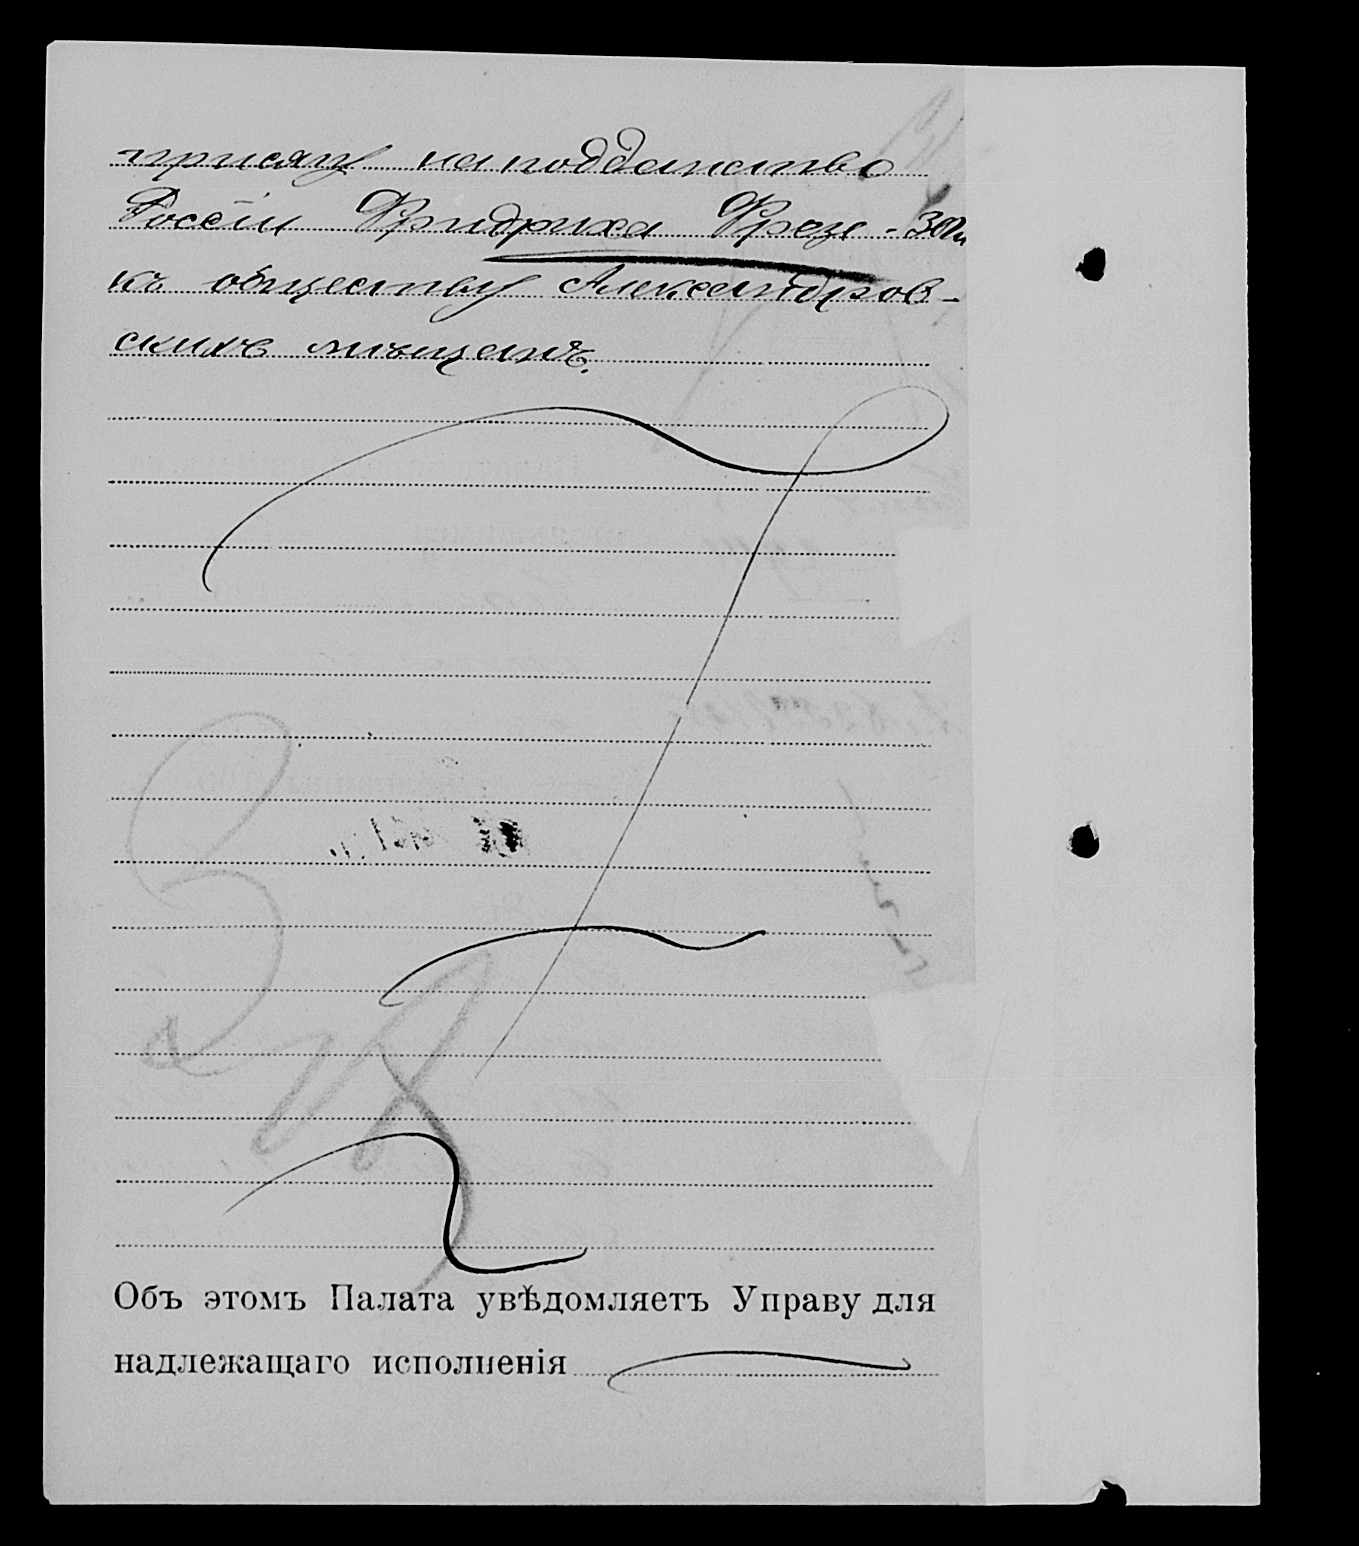 присягу на подданство
Россіи Фридриха Фрезе - 30 л.
къ обществу Александров-
скихъ мѣщанъ.
Объ этомъ Палата увѣдомляетъ Управу для
надлежащаго исполненія